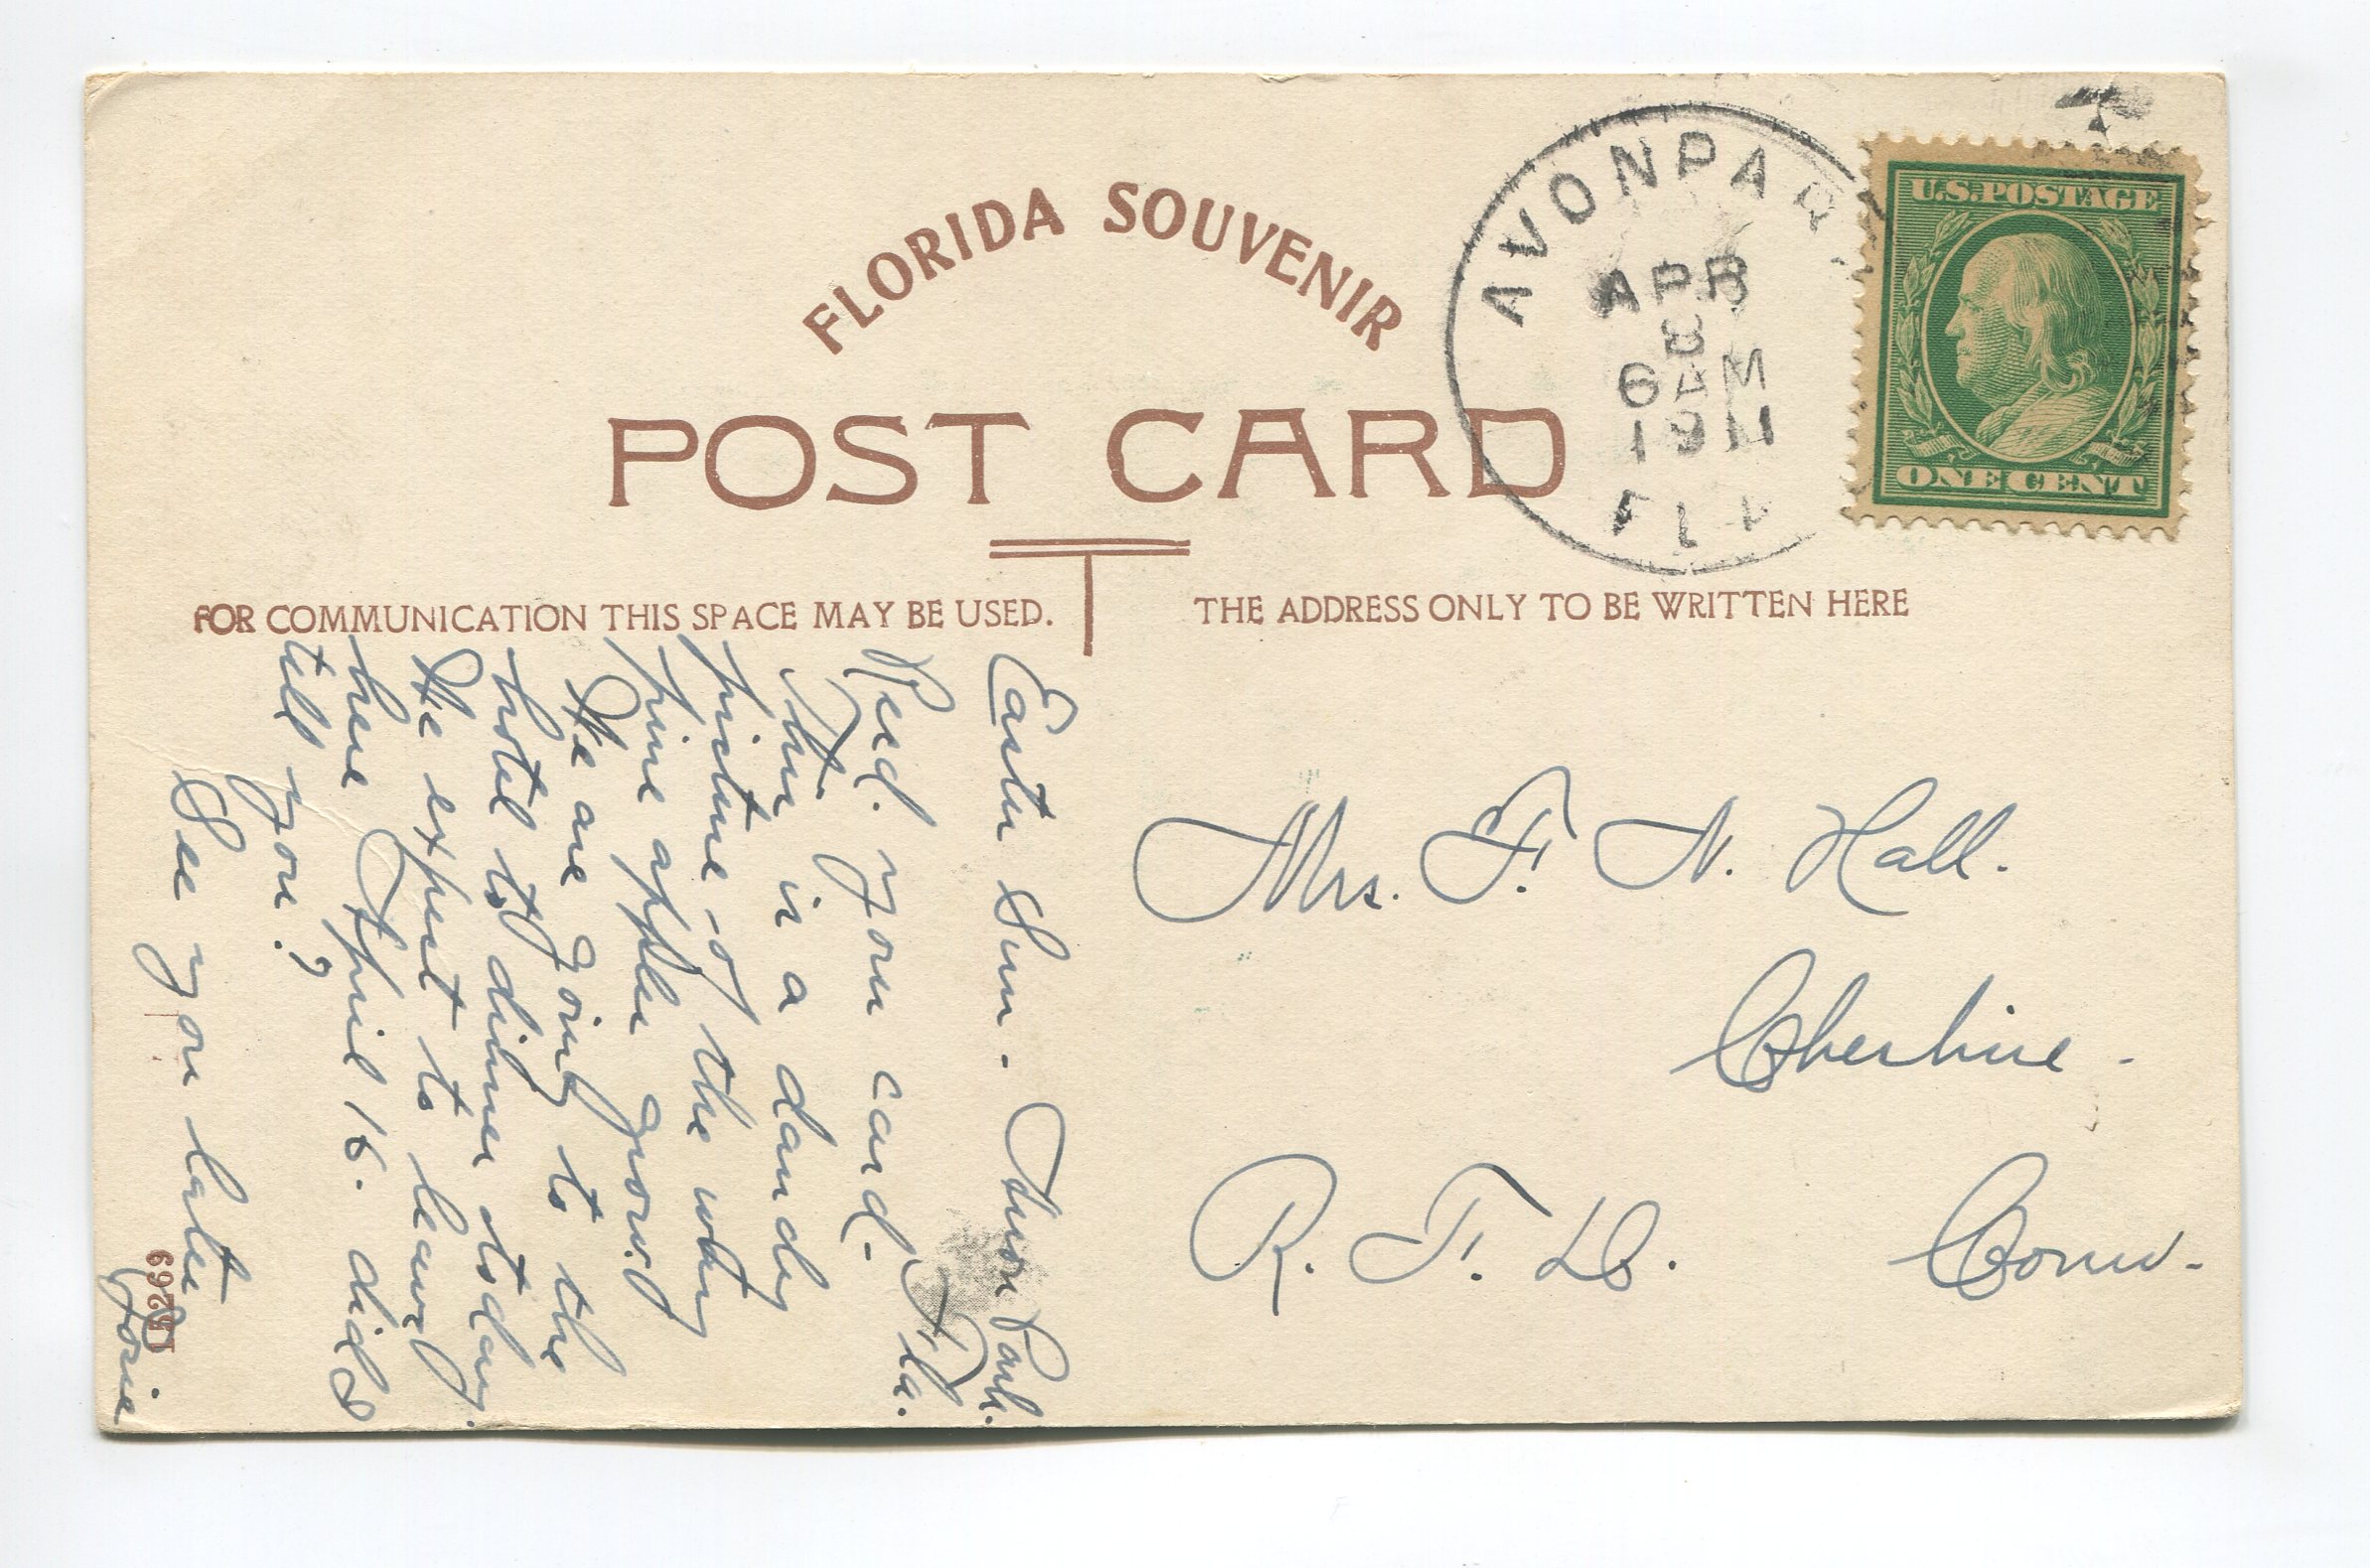 FLORIDA SOUVENIR
POST CARD
AVONPARK
APR
8
6 AM
1911
FLA
U.S. POSTAGE
ONE CENT
FOR COMMUNICATION THIS SPACE MAY BE USED.
THE ADDRESS ONLY TO BE WRITTEN HERE
Easter Sun. Avon Park.
Fla.
Recd. your card -
This is a dandy
picture of the way
pine apples grow.
We are going to the
hotel to dinner today.
We expect to leave
here April 16. did I
tell you?
See you later
Josie
15269
Mrs. F. N. Hall.
Cheshire -
R. F. D. Conn.